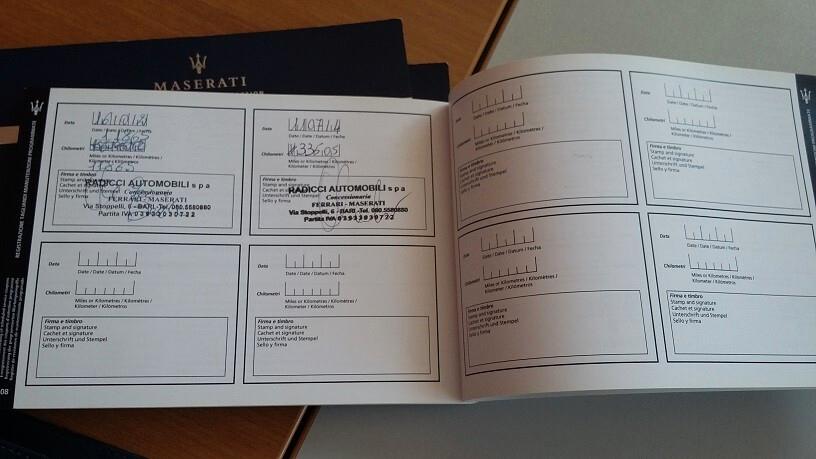 MASERATI
REGISTRAZIONE TAGLIANDI MANUTENZIONE PROGRAMMATA
Data
Date / Date / Datum / Fecha
Chilometri
Miles or Kilometres / Kilomètres /
Kilometer / Kilómetros
11863
Firma e timbro
Stamp and signature
Cachet et signature
Unterschrift und Stempel
Sello y firma
RADICCI AUTOMOBILI s p a
Concessionaria
FERRARI - MASERATI
Via Stoppelli, 6 - BARI -Tel. 080.5580880
Partita IVA 03933030722
Data
Date / Date / Datum / Fecha
Chilometri
Miles or Kilometres / Kilomètres /
Kilometer / Kilómetros
Firma e timbro
Stamp and signature
Cachet et signature
Unterschrift und Stempel
Sello y firma
RADICCI AUTOMOBILI s p a
Concessionaria
FERRARI - MASERATI
Via Stoppelli, 6 - BARI -Tel. 080.5580880
Partita IVA 03933030722
Data
Date / Date / Datum / Fecha
Chilometri
Miles or Kilometres / Kilomètres /
Kilometer / Kilómetros
Firma e timbro
Stamp and signature
Cachet et signature
Unterschrift und Stempel
Sello y firma
Data
Date / Date / Datum / Fecha
Chilometri
Miles or Kilometres / Kilomètres /
Kilometer / Kilómetros
Firma e timbro
Stamp and signature
Cachet et signature
Unterschrift und Stempel
Sello y firma
08
Data
Date / Date / Datum / Fecha
Chilometri
Miles or Kilometres / Kilomètres /
Kilometer / Kilómetros
Firma e timbro
Stamp and signature
Cachet et signature
Unterschrift und Stempel
Sello y firma
Data
Date / Date / Datum / Fecha
Chilometri
Miles or Kilometres / Kilomètres /
Kilometer / Kilómetros
Firma e timbro
Stamp and signature
Cachet et signature
Unterschrift und Stempel
Sello y firma
Data
Date / Date / Datum / Fecha
Chilometri
Miles or Kilometres / Kilomètres /
Kilometer / Kilómetros
Firma e timbro
Stamp and signature
Cachet et signature
Unterschrift und Stempel
Sello y firma
Data
Date / Date / Datum / Fecha
Chilometri
Miles or Kilometres / Kilomètres /
Kilometer / Kilómetros
Firma e timbro
Stamp and signature
Cachet et signature
Unterschrift und Stempel
Sello y firma